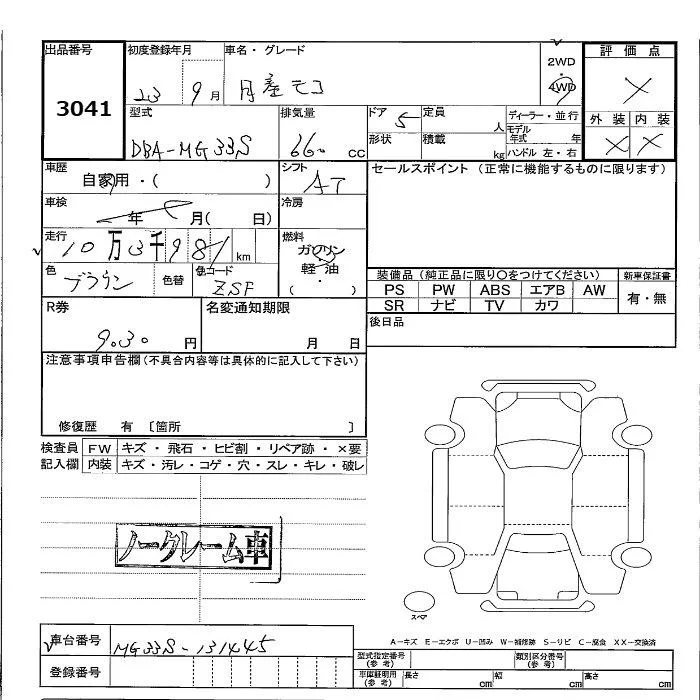 出品番号 初度登録年月 車名・グレード 2WD 評価点
3041 23 9月 日産モコ 4WD ×
型式 排気量 ドア 5 定員 人 ディーラー・並行 外装 内装
DBA-MG33S 660 cc 形状 積載 kg モデル年式 年 × ×
ハンドル 左・右
車歴 シフト セールスポイント (正常に機能するものに限ります)
自家用・( ) AT
車検 冷房
年 月( 日)
走行 燃料
10万3千987km ガソリン
軽油
色 色替 色コード ・
ブラウン ZSF ( )
装備品 (純正品に限り〇をつけてください) 新車保証書
PS PW ABS エアB AW 有・無
SR ナビ TV カワ
R券 名変通知期限 後日品
9.30 円 月 日
注意事項申告欄(不具合内容等は具体的に記入して下さい)
修復歴 有 〔箇所 〕
検査員 FW キズ・飛石・ヒビ割・リペア跡・×要
記入欄 内装 キズ・汚レ・コゲ・穴・スレ・キレ・破レ
ノークレーム車
スペア
A−キズ E−エクボ U−凹み W−補修跡 S−サビ C−腐食 XX−交換済
車台番号 MG33S-131445
登録番号
型式指定番号(参考) 類別区分番号(参考)
車庫証明用(参考) 長さ cm 幅 cm 高さ cm